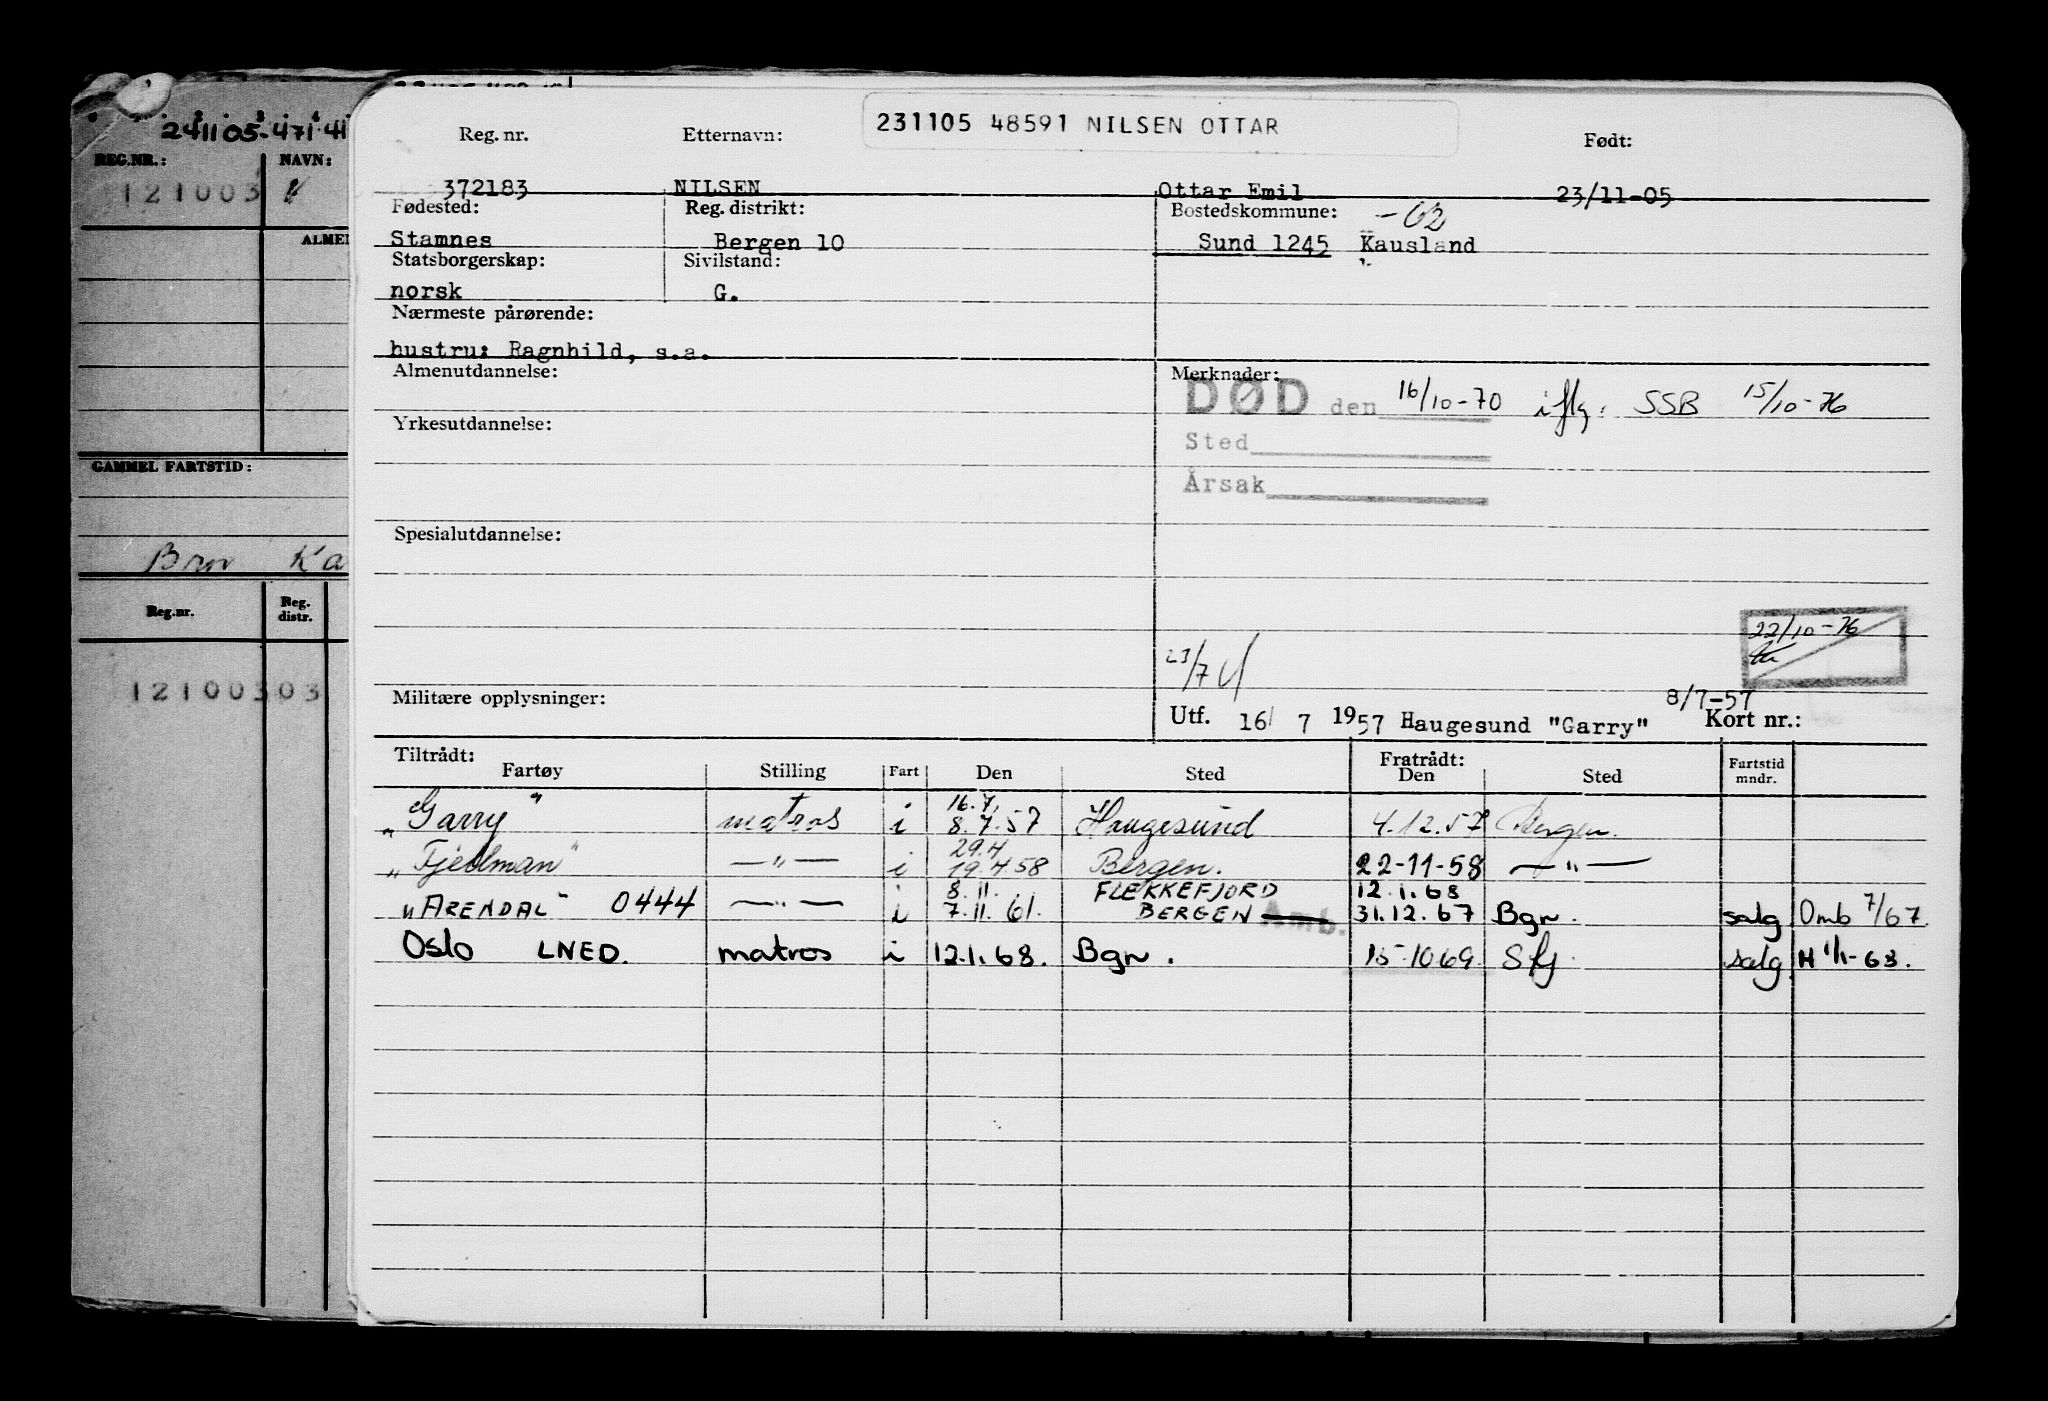 241105-471 41
REG.NR.:
NAVN:
121003
ALMEN
GAMMEL FARTSTID:
Reg.nr.
Reg. distr.
12100303
231105 48591 NILSEN OTTAR
Reg. nr.
Etternavn:
Født:
372183
NILSEN
Ottar Emil
23/11-05
Fødested:
Reg. distrikt:
Bostedskommune:
-62
Stamnes
Bergen 10
Sund 1245 Kausland
Statsborgerskap:
Sivilstand:
norsk
G.
Nærmeste pårørende:
hustru: Ragnhild, s.a.
Almenutdannelse:
Merknader:
DØD den 16/10-70 iflg. SSB 15/10-76
Yrkesutdannelse:
Sted
Årsak
Spesialutdannelse:
22/10-76
23/7
Militære opplysninger:
8/7-57
Utf. 16/ 7 1957 Haugesund "Garry" Kort nr.:
Tiltrådt:
Fratrådt:
Fartøy
Stilling
Fart
Den
Sted
Den
Sted
Fartstid mndr.
16.7.
"Garry" matros i 8.7.57 Haugesund 4.12.57 Bergen.
29.4
"Fjellman" —"— i 19.4.58 Bergen. 22-11-58 —"—
8.11. FLEKKEFJORD 12.1.68
"ARENDAL" 0444 —"— i 7.11.61. BERGEN Amb. 31.12.67 Bgn. salg Omb 7/67.
Oslo LNED. matros i 12.1.68. Bgn. 15-1069. Sfj. salg H 1/1-63.